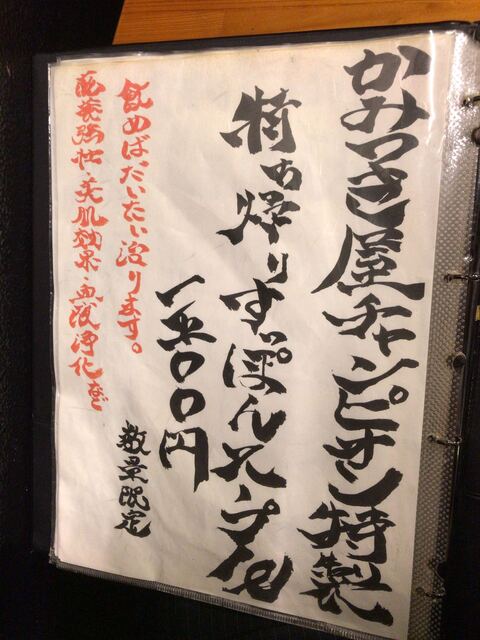 かみつき屋チャンピオン特製
持ち帰りすっぽんスープ1ℓ
一五〇〇円
数量限定
飲めばだいたい治ります。
滋養強壮・美肌効果・血液浄化など